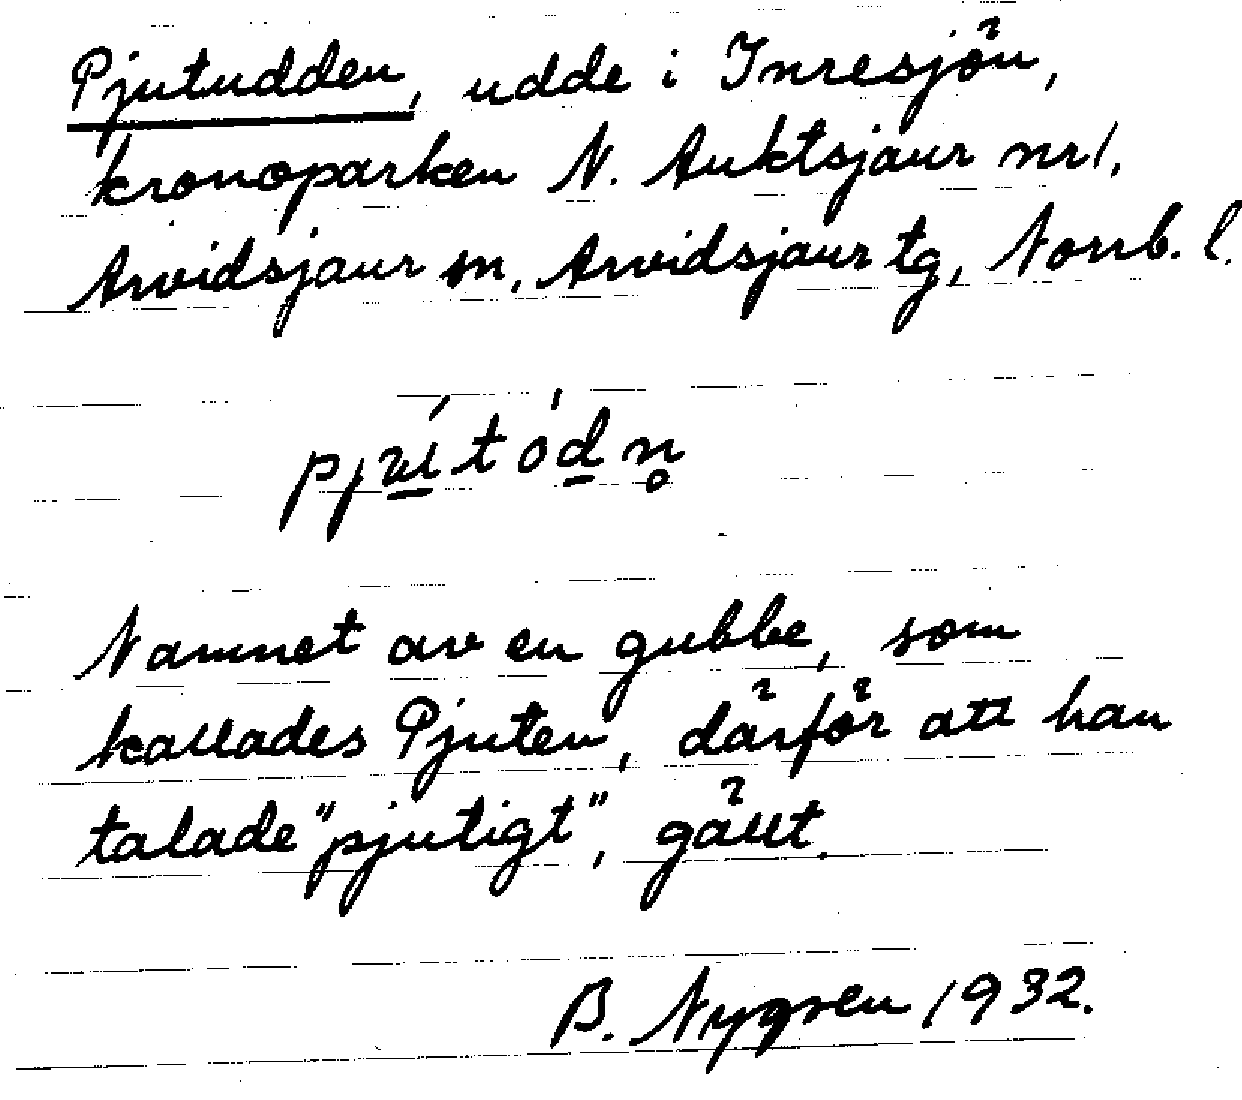 Pjutudden, udde i Inresjön,
kronoparken N. Auktsjaur nr 1,
Arvidsjaur sn, Arvidsjaur tg, Norrb. l.
Namnet av en gubbe, som
kallades Pjuten, därför att han
talade "pjutigt", gällt.
B. Nygren 1932.